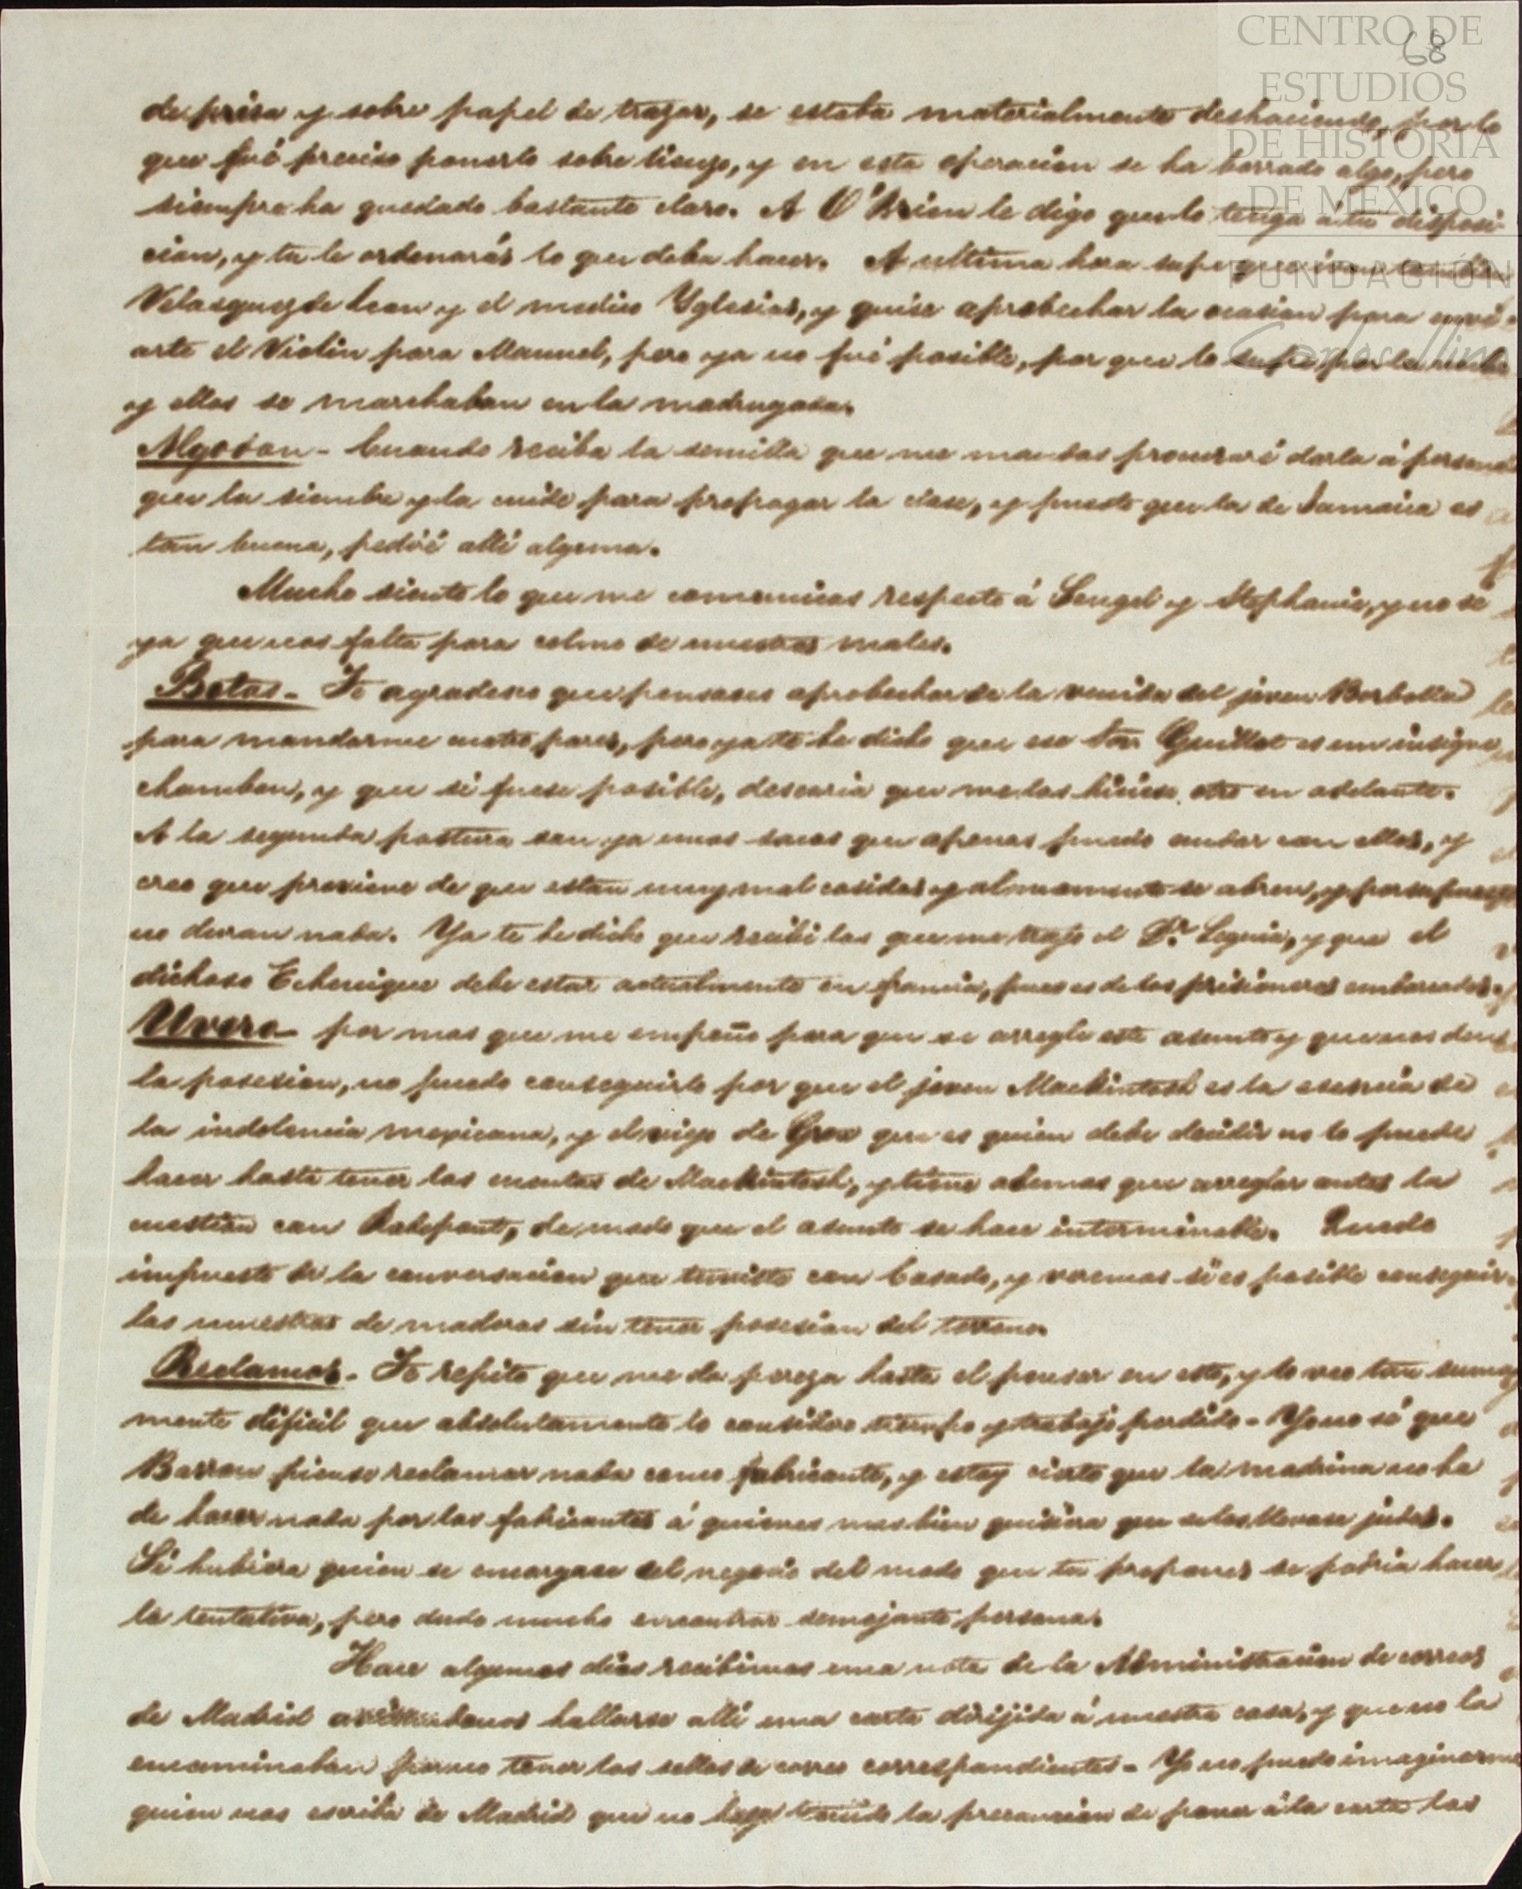 CENTRO DE
ESTUDIOS
DE HISTORIA
DE MÉXICO
FUNDACIÓN
68
de prisa y sobre papel de trazar, se estaba materialmente deshaciendo, por lo
que fué preciso ponerlo sobre lienzo, y en esta operacion se ha borrado algo, pero
siempre ha quedado bastante claro. A O'Brien le digo que lo tenga a tu disposi-
cion, y tu le ordenarás lo que deba hacer. A ultima hora supe que
Velasquez de Leon y el medico Yglesias, y quise aprobechar la ocasion para envi-
arte el Violin para Manuel, pero ya no fué posible, por que lo supe por la noche
y ellos se marchaban en la madrugada.
Algodon - Cuando reciba la semilla que me mandas procuraré darla á persona
que la siembre y la cuide para propagar la clase, y puesto que la de Jamaica es
tan buena, pediré allí alguna.
Mucho siento lo que me comunicas respecto á Lengel y Stephanie, y no sé
ya que nos falta para colmo de nuestros males.
Botas - Te agradesco que pensases aprobechar de la venida del joven Borbolla
para mandarme cuatro pares, pero ya te he dicho que ese Guillot es un insigne
chambon, y que si fuese posible, desearia que me las hiciese otro en adelante.
A la segunda postura son ya unos sacos que apenas puedo andar con ellos, y
creo que proviene de que estan muy mal cosidas y al momento se abren, y por supuesto
no duran nada. Ya te he dicho que recibi las que me trajo el Dr. Leguia, y que el
dichoso Echenique debe estar actualmente en francia, pues es de los prisioneros embarcados.
Uvero - por mas que me empeño para que se arregle este asunto y que nos den
la posesion, no puedo conseguirlo por que el joven Mackintosh es la esencia de
la indolencia mexicana, y el viejo de Grox que es quien debe decidir no lo puede
hacer hasta tener las cuentas de Mackintosh, y tiene ademas que arreglar antes la
cuestion con Radepont, de modo que el asunto se hace interminable. Quedo
impuesto de la conversacion que tuviste con Casado, y veremos si es posible conseguir
las muestras de maderas sin tener posesion del terreno.
Reclamos - Te repito que me da pereza hasta el pensar en esto, y lo veo tan suma-
mente dificil que absolutamente lo considero tiempo y trabajo perdido - Yo no sé que
Barron piense reclamar nada como fabricante, y estoy cierto que la madrina no ha
de hacer nada por los fabricantes á quienes mas bien quisiera que se los llevase judas.
Si hubiera quien se encargase del negocio del modo que tu propones se podria hacer
la tentativa, pero dudo mucho encontrar semejante persona.
Hace algunos dias recibimos una nota de la Administracion de correos
de Madrid avisandonos hallarse allí una carta dirijida á nuestra casa, y que no la
encaminaban por no tener los sellos de correo correspondientes - Yo no puedo imaginarme
quien nos escriba de Madrid que no haya tenido la precaucion de poner á la carta los